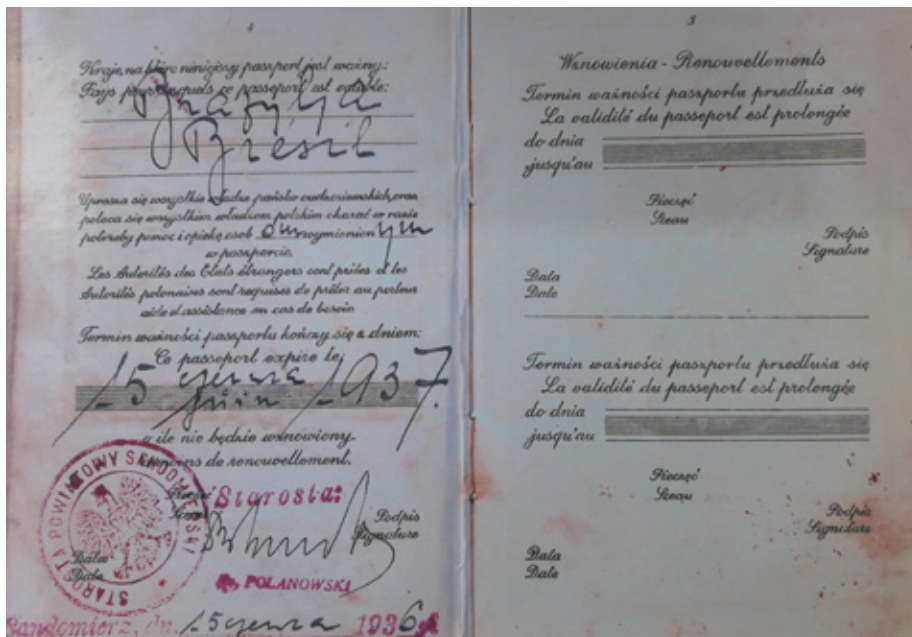 4
Kraje, na które niniejszy paszport jest ważny:
Pays pour lesquels ce passeport est valable:
Brazylja
Brésil
Uprasza się wszystkie władze państw cudzoziemskich, oraz
poleca się wszystkim władzom polskim okazać w razie
potrzeby pomoc i opiekę osob om wymienion ym
w paszporcie.
Les Autorités des Etats étrangers sont priées et les
Autorités polonaises sont requises de prêter au porteur
aide et assistance en cas de besoin
Termin ważności paszportu kończy się z dniem:
Ce passeport expire le:
15 czerwca 1937.
juin
o ile nie będzie wznowiony.
à moins de renouvellement.
STAROSTA POWIATOWY SANDOMIERSKI
Pieczęć Starosta:
Sceau
Podpis
Signature
Data
Date
POLANOWSKI
Sandomierz, dn. 15 czerwca 1936
5
Wznowienia - Renouvellements
Termin ważności paszportu przedłuża się
La validité du passeport est prolongée
do dnia
jusqu'au
Pieczęć
Sceau
Podpis
Signature
Data
Date
Termin ważności paszportu przedłuża się
La validité du passeport est prolongée
do dnia
jusqu'au
Pieczęć
Sceau
Podpis
Signature
Data
Date